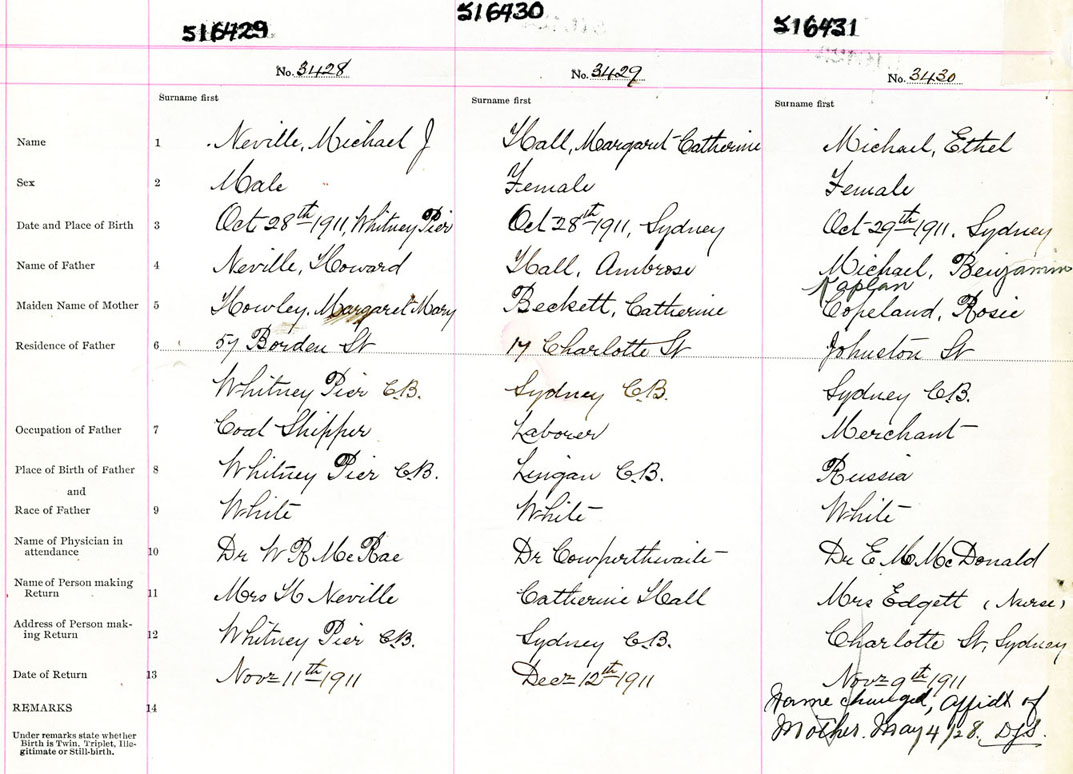 516429 516430 516431
No. 3428 No. 3429 No. 3430
Surname first Surname first Surname first
Name 1 Neville, Michael J Hall, Margaret Catherine Michael, Ethel
Sex 2 Male Female Female
Date and Place of Birth 3 Oct 28th 1911, Whitney Pier Oct 28th 1911, Sydney Oct 29th 1911. Sydney
Name of Father 4 Neville, Howard Hall, Ambrose Michael, Benjamin
Kaplan
Maiden Name of Mother 5 Howley, Margaret Mary Beckett, Catherine Copeland, Rosie
Residence of Father 6 57 Borden St 17 Charlotte St Johnston St
Whitney Pier C.B. Sydney C.B. Sydney C.B.
Occupation of Father 7 Coal Shipper Laborer Merchant
Place of Birth of Father 8 Whitney Pier C.B. Lingan C.B. Russia
and
Race of Father 9 White White White
Name of Physician in
attendance 10 Dr W R McRae Dr Cowperthwaite Dr E M McDonald
Name of Person making
Return 11 Mrs H Neville Catherine Hall Mrs Edgett (Nurse)
Address of Person mak-
ing Return 12 Whitney Pier C.B. Sydney C.B. Charlotte St, Sydney
Date of Return 13 Nov 11th 1911 Dec 12th 1911 Nov 9th 1911
REMARKS 14 Name changed, Affidt of
Mother. May 4/28. DJS.
Under remarks state whether
Birth is Twin, Triplet, Ille-
gitimate or Still-birth.